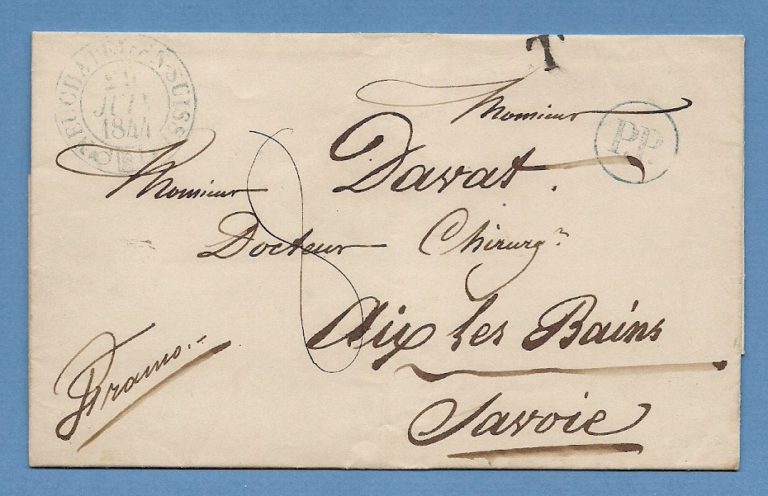 NEUCHATEL EN SUISSE
1844
T
P.P.
Monsieur
Monsieur Davat.
Docteur Chirurg.n
Aix les Bains
Savoie
8
Franco.